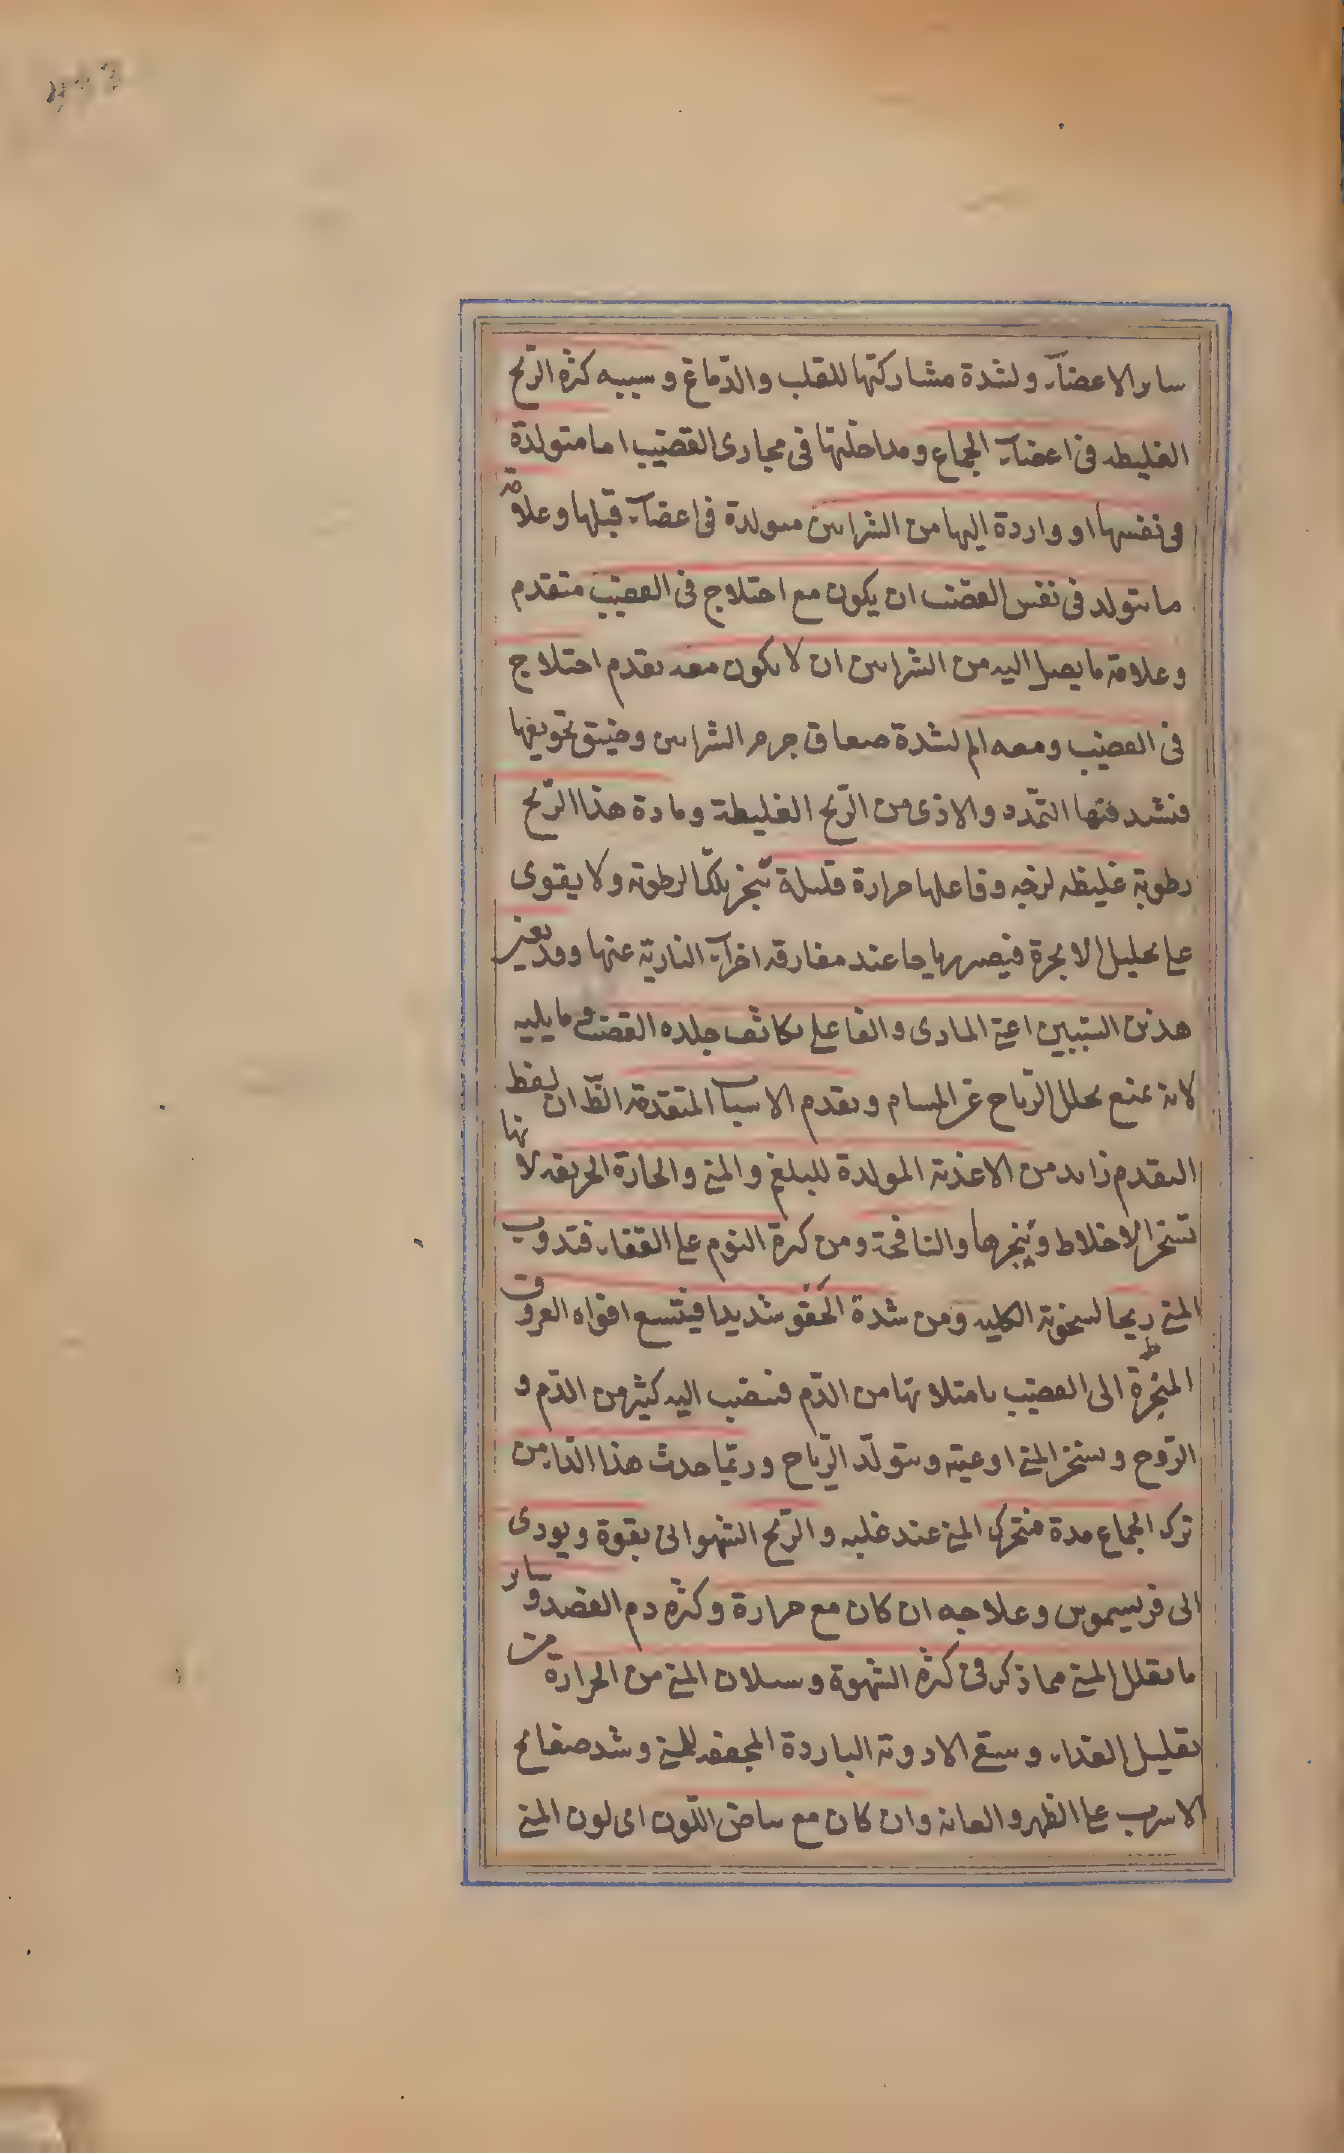 ساير الاعضآء ولشدة مشاركتها للقلب والدّماغ وسببه كثرة الرّيح
الغليظه فى اعضآء الجماع ومداخلتها فى مجارى القضيب اما متولدة
فى نفسها او واردة اليها من الشراىىن متولدة فى اعضآء قبلها وعلامة
ما يتولد فى نفس القضيب ان يكون مع اختلاج فى القضيب متقدم
وعلامة ما يصل اليه من الشراىىن ان لا يكون معه تقدم اختلاج
فى القضيب ومعه الم لشدة صفاق جرم الشراىىن وضيق تجويفها
فتشد فيها التمدد والاذى من الرّيح الغليظة ومادة هذا الرّيح
رطوبة غليظه لزجه وفاعلها حرارة قليلة تبخر تلك الرطوبة ولا يقوى
على تحليل الابخرة فيصير رياحا عند مفارقه اجزآء النارية عنها وقد يعين
هذين السّببين اعنى المادى والفاعلى تكاثف جلده القضيب وما يليه
لانه يمنع تحلل الرّياح عن المسام وتقدم الاسباب المتقدمة الظ ان لفظ
التقدم زايد من الاغذية المولدة للبلغم والمنى والحارة الحريفه لانها
تسخن الاخلاط ويبخرها والنافخة ومن كثرة النوم على القفاء فتذوب
المنى ريحا لسخونة الكليه ومن شدة الحقو شديدا فيتسع افواه العروق
المنجرّة الى القضيب بامتلائها من الدّم فينصب اليه كثير من الدّم و
الرّوح ويسخن المنى اوعيته ويتولّد الرّياح وربّما حدث هذا الدّاء من
ترك الجماع مدة فيتحرك المنى عند غلبه والرّيح الشهوانى بقوة ويودى
الى فريسيموس وعلاجه ان كان مع حرارة وكثرة دم الفصد وساير
ما يقلل المنى مما ذكر فى كثرة الشهوة وسيلان المنى من الحرارة من
تقليل الغذاء وسقى الادوية الباردة المجففه للمنى وشد صفايح
الاسرب على الظهر والعانه وان كان مع بياض اللّون اى لون المنى